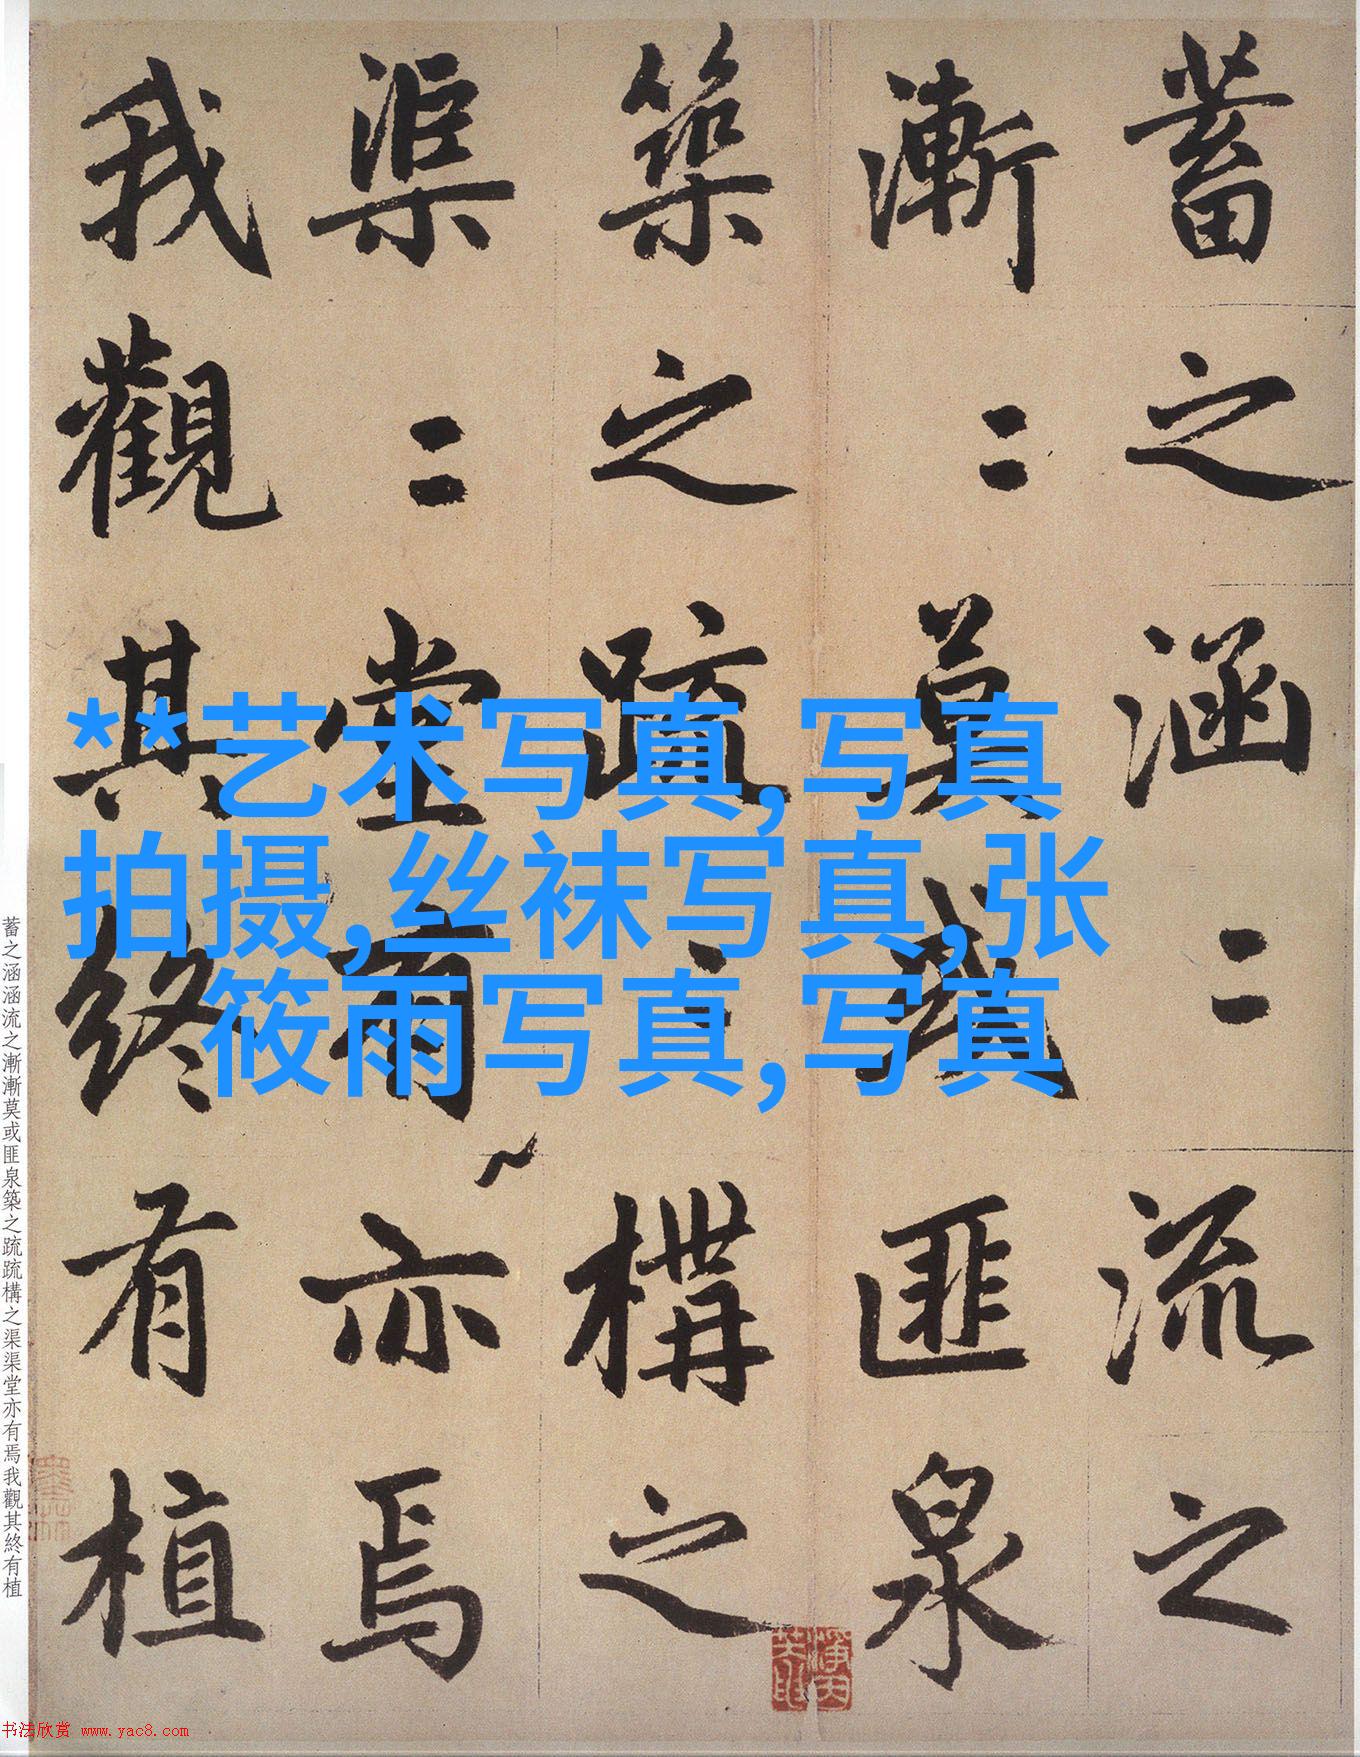 蓄之涵二流之
漸二莫或匪泉
築之疏二構之
渠二堂有亦焉
我觀其終有植
**艺术写真,写真
拍摄,丝袜写真,张
筱雨写真,写真
蓄之涵涵流之漸漸莫或匪泉築之疏疏構之渠渠堂亦有焉我觀其終有植
书法欣赏 www.yac8.com